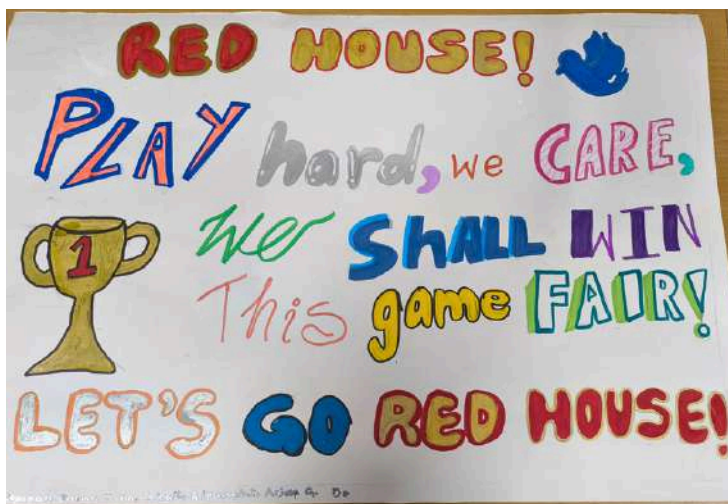 RED HOUSE!
PLAY hard, we CARE,
We ShALL WIN
This game FAIR!
LET'S GO RED HOUSE!